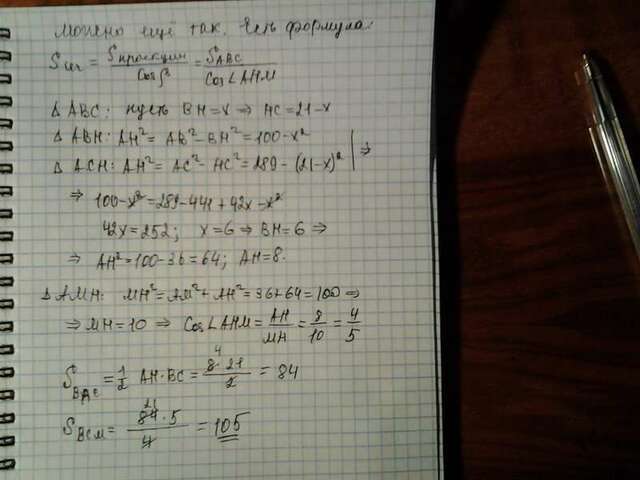 Можно ещё так. Есть формула:
Sиг = Sпроекции/Cosβ = SABC/Cos∠AHM
Δ ABC: пусть BH=x ⇒ HC=21-x
Δ ABH: AH²= AB²-BH²=100-x²
Δ ACH: AH²= AC²- HC²=289-(21-x)² | ⇒
⇒ 100-x²=289-441+42x-x²
42x=252; x=6 ⇒ BH=6 ⇒
⇒ AH²=100-36=64; AH=8.
Δ AMH: MH²=AM²+AH²=36+64=100 ⇒
⇒ MH=10 ⇒ Cos∠AHM= AH/MH = 8/10 = 4/5
SBAC = 1/2 AH·BC = 8·21/2 = 84
SBCM = 84·5/4 = 105